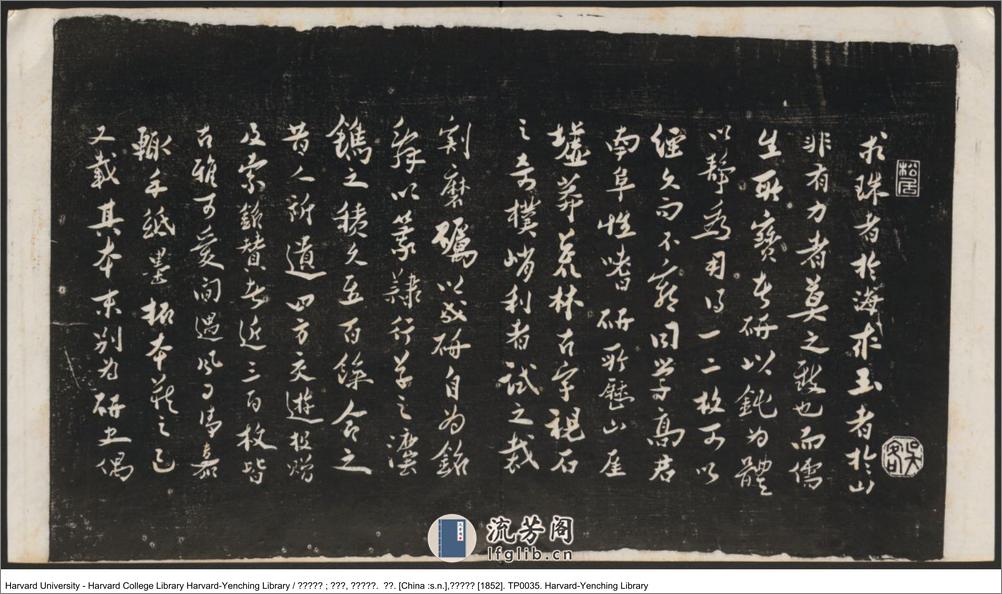 松居
求珠者於海求玉者於山
非有力者莫之致也而儒
生所寶者研以鈍為體
以靜為用得一二枚可以
經久而不窮同學高君
南阜性嗜研所歷山厓
墟莽荒林古宇視石
之奇樸峭利者試之裁
割磨礪以成研自為銘
辞以篆隸行草之灋
鐫之積久至百餘合之
昔人所遺四方交遊投贈
及索銘贊者近三百枚皆
古雅可愛閒遇風日清嘉
輒手紙墨拓本藏之已
又載其本末別為研史偶
流芳阁
lfglib.cn
Harvard University - Harvard College Library Harvard-Yenching Library / ????? ; ???, ?????. ??. [China :s.n.],????? [1852]. TP0035. Harvard-Yenching Library